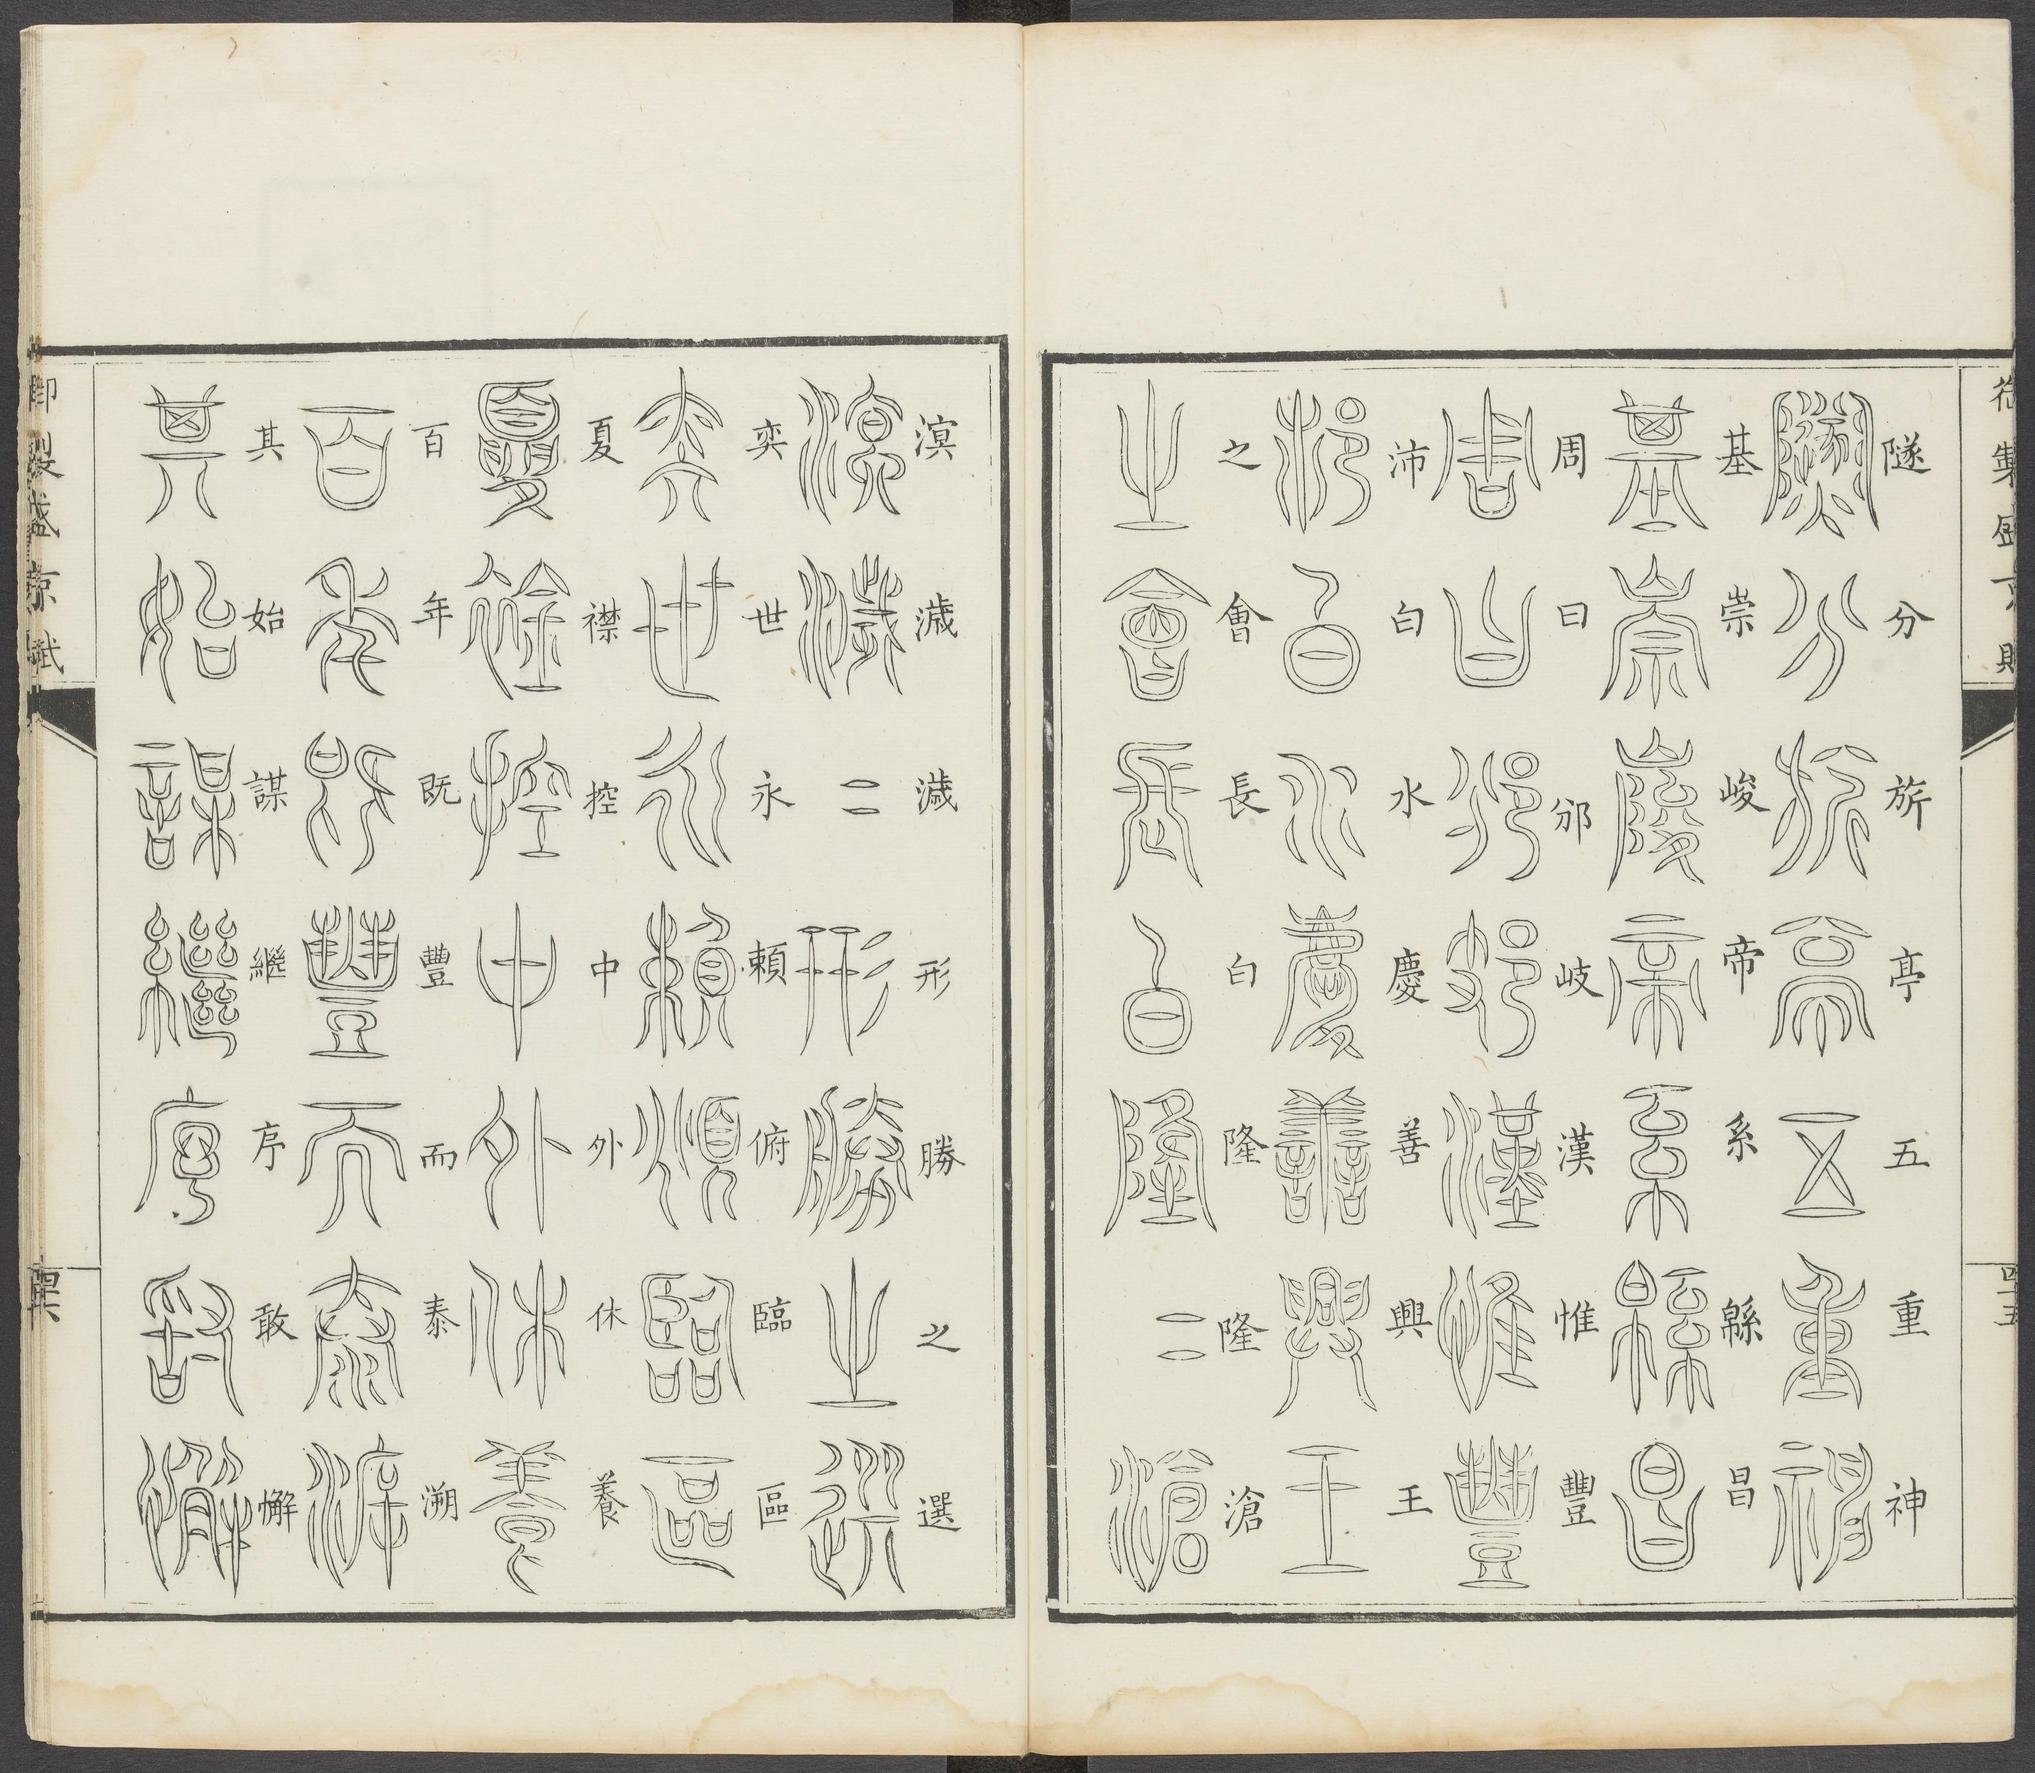 御製盛京賦
四十五
隧分旂亭五重神
基崇峻帝系緜昌
周曰邠岐漢惟豐
沛白水慶善興王
之會長白隆隆滄
溟濊濊形勝之選
奕世永賴俯臨區
夏襟控中外休養
百年既豐而泰溯
其始謀繼序敢懈
御製盛京賦